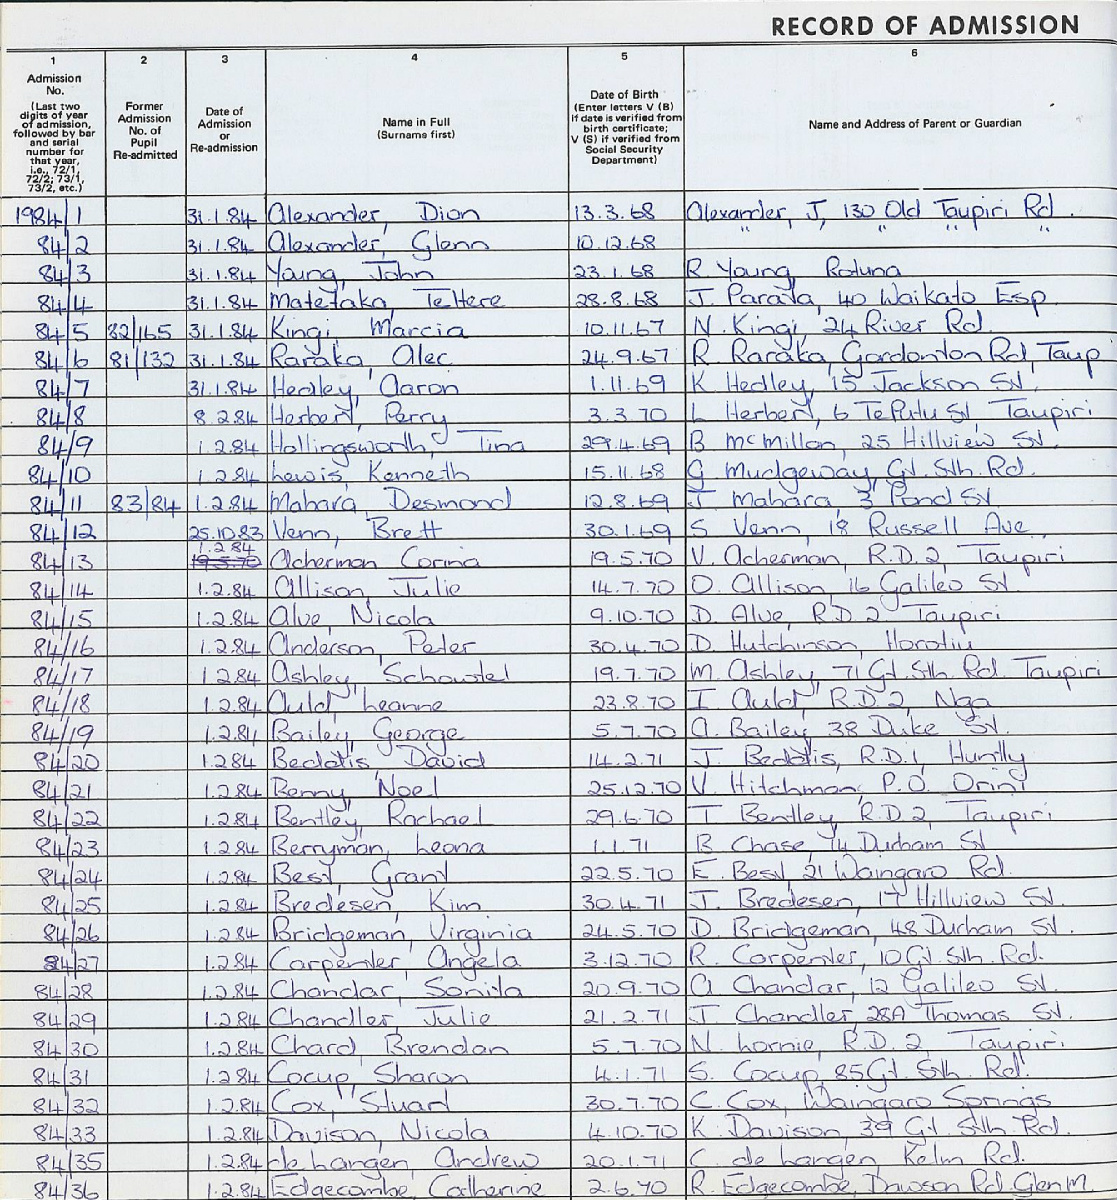 RECORD OF ADMISSION
1 2 3 4 5 6
Admission No. (Last two digits of year of admission, followed by bar and serial number for that year, i.e., 72/1, 72/2; 73/1, 73/2, etc.)
Former Admission No. of Pupil Re-admitted
Date of Admission or Re-admission
Name in Full (Surname first)
Date of Birth (Enter letters V (B) if date is verified from birth certificate; V (S) if verified from Social Security Department)
Name and Address of Parent or Guardian
1984/1 31.1.84 Alexander, Dion 13.3.68 Alexander, J, 130 Old Taupiri Rd.
84/2 31.1.84 Alexander, Glenn 10.12.68 " " " "
84/3 31.1.84 Young, John 23.1.68 R. Young, Rotuna
84/4 31.1.84 Matetaka, TeHere 28.8.68 J. Parata, 40 Waikato Esp.
84/5 82/165 31.1.84 Kingi, Marcia 10.11.67 N. Kingi, 24 River Rd.
84/6 81/132 31.1.84 Raraka, Alec 24.9.67 R. Raraka, Gordonton Rd, Taup
84/7 31.1.84 Hedley, Aaron 1.11.69 K Hedley, 15 Jackson St.
84/8 8.2.84 Herbert, Perry 3.3.70 L Herbert, 6 TePutu St, Taupiri
84/9 1.2.84 Hollingsworth, Tina 29.4.69 B McMillan, 25 Hillview St.
84/10 1.2.84 Lewis, Kenneth 15.11.68 G. Mudgeway, Gt. Sth. Rd.
84/11 83/84 1.2.84 Mahara, Desmond 12.8.69 J. Mahara, 3 Pond St
84/12 25.10.83 Venn, Brett 30.1.69 S. Venn, 18 Russell Ave,
84/13 19.5.70 1.2.84 Acherman Corina 19.5.70 V. Acherman, R.D.2, Taupiri
84/14 1.2.84 Allison, Julie 14.7.70 O. Allison, 16 Galileo St.
84/15 1.2.84 Alve, Nicola 9.10.70 D. Alve, R.D.2 Taupiri
84/16 1.2.84 Anderson, Peter 30.4.70 D. Hutchinson, Horotiu
84/17 1.2.84 Ashley, 19.7.70 M. Ashley, 71 Gt. Sth. Rd. Taupiri
84/18 1.2.84 Auld, Leanne 23.8.70 I. Auld, R.D.2, Nga
84/19 1.2.84 Bailey, George 5.7.70 A. Bailey, 38 Duke St.
84/20 1.2.84 Beddis, David 14.2.71 J. Beddis, R.D.1, Huntly
84/21 1.2.84 Benny, Noel 25.12.70 V. Hitchman, P.O. Orini
84/22 1.2.84 Bentley, Rachael 29.6.70 T Bentley, R.D.2, Taupiri
84/23 1.2.84 Berryman, Leona 1.1.71 B Chase, 14 Durham St
84/24 1.2.84 Best, Grant 22.5.70 E. Best 21 Waingaro Rd.
84/25 1.2.84 Bredesen, Kim 30.4.71 J. Bredesen, 17 Hillview St.
84/26 1.2.84 Bridgeman, Virginia 24.5.70 D. Bridgeman, 48 Durham St.
84/27 1.2.84 Carpenter, Angela 3.12.70 R. Carpenter, 10 Gt. Sth. Rd.
84/28 1.2.84 Chandar, Sonita 20.9.70 A Chandar, 12 Galileo St.
84/29 1.2.84 Chandler, Julie 21.2.71 J. Chandler, 28A Thomas St.
84/30 1.2.84 Chard, Brendan 5.7.70 N. Lornie, R.D.2, Taupiri
84/31 1.2.84 Cocup, Sharon 4.1.71 S. Cocup, 85 Gt. Sth. Rd.
84/32 1.2.84 Cox, Stuart 30.7.70 C. Cox, Waingaro Springs
84/33 1.2.84 Davison, Nicola 4.10.70 K. Davison, 39 Gt. Sth. Rd.
84/35 1.2.84 de Langen, Andrew 20.1.71 C. de Langen, Kelm Rd.
84/36 1.2.84 Edgecombe, Catherine 2.6.70 R. Edgecombe, Dawson Rd, Glen M.